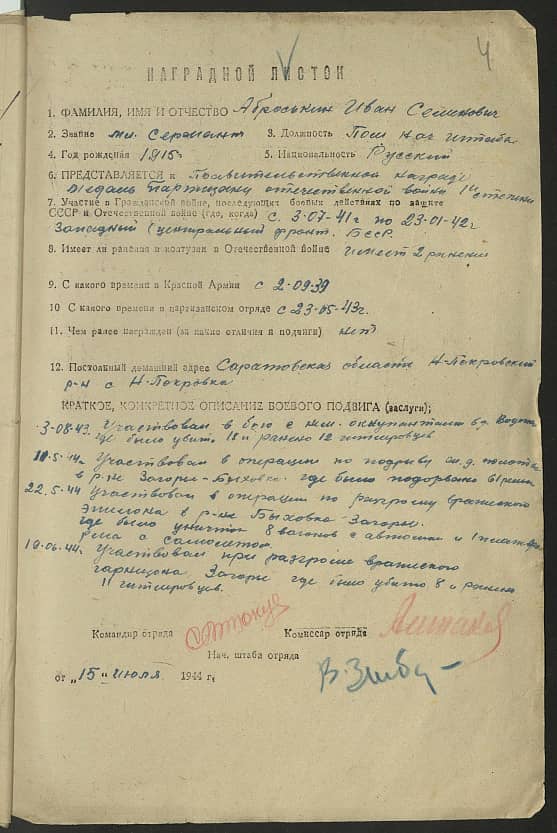 4
НАГРАДНОЙ ЛИСТОК
1. ФАМИЛИЯ, ИМЯ И ОТЧЕСТВО Аброськин Иван Семенович
2. Звание мл. Сержант 3. Должность Пом нач штаба
4. Год рождения 1915г 5. Национальность Русский
6. ПРЕДСТАВЛЯЕТСЯ к Правительственной награде
медаль Партизану отечественной войны 1ой степени
7. Участие в Гражданской войне, последующих боевых действиях по защите
СССР и Отечественной войне (где, когда) с 3-07-41г по 23-01-42г
Западный (центральный фронт. БССР.
8. Имеет ли ранения и контузии в Отечественной войне имеет 2 ранения
9. С какого времени в Красной Армии с 2-09-39
10 С какого времени в партизанском отряде с 23-05-43г.
11. Чем ранее награжден (за какие отличия и подвиги) нет
12. Постоянный домашний адрес Саратовская область Н-Покровский
р-н с Н-Покровка
КРАТКОЕ, КОНКРЕТНОЕ ОПИСАНИЕ БОЕВОГО ПОДВИГА (заслуги);
3-08-43. Участвовал в бою с нем. оккупантами в д.
где было убито 18 и ранено 12 гитлеровцев
Участвовал в операции по подрыву жел.д. полотна
в р-не Загорье-Быховка. где было подорвано 61 рельс
22.5.44 Участвовал в операции по разгрому вражеского
эшелона в р-не Быховка-Загорье.
где было уничтож 8 вагонов с автомаш и 1 платфор
рма с самолетом.
19.06.44г. Участвовал при разгроме вражеского
гарнизона Загорье где было убито 8 и ранено
11 гитлеровцев.
Командир отряда Комиссар отряда
Нач. штаба отряда
от „15" июля 1944 г.